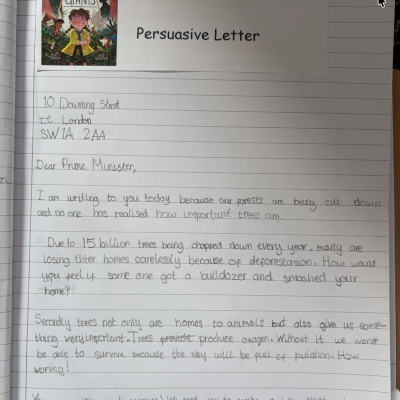 GIANTS
Persuasive Letter
10 Downing Street
London
SW1A 2AA
Dear Prime Minister,
I am writing to you today because our forests are being cut down
and no one has realised how important trees are.
Due to 15 billion trees being chopped down every year, many are
losing thier homes carelessly because of deforestation. How would
you feel if some one got a bulldozer and smashed your
home?
Secondly trees not only are homes to animals but also give us some-
thing very important. Trees provide produce oxegen. Without it we wont
be able to survive because the sky will be full of pulation. How
worring!